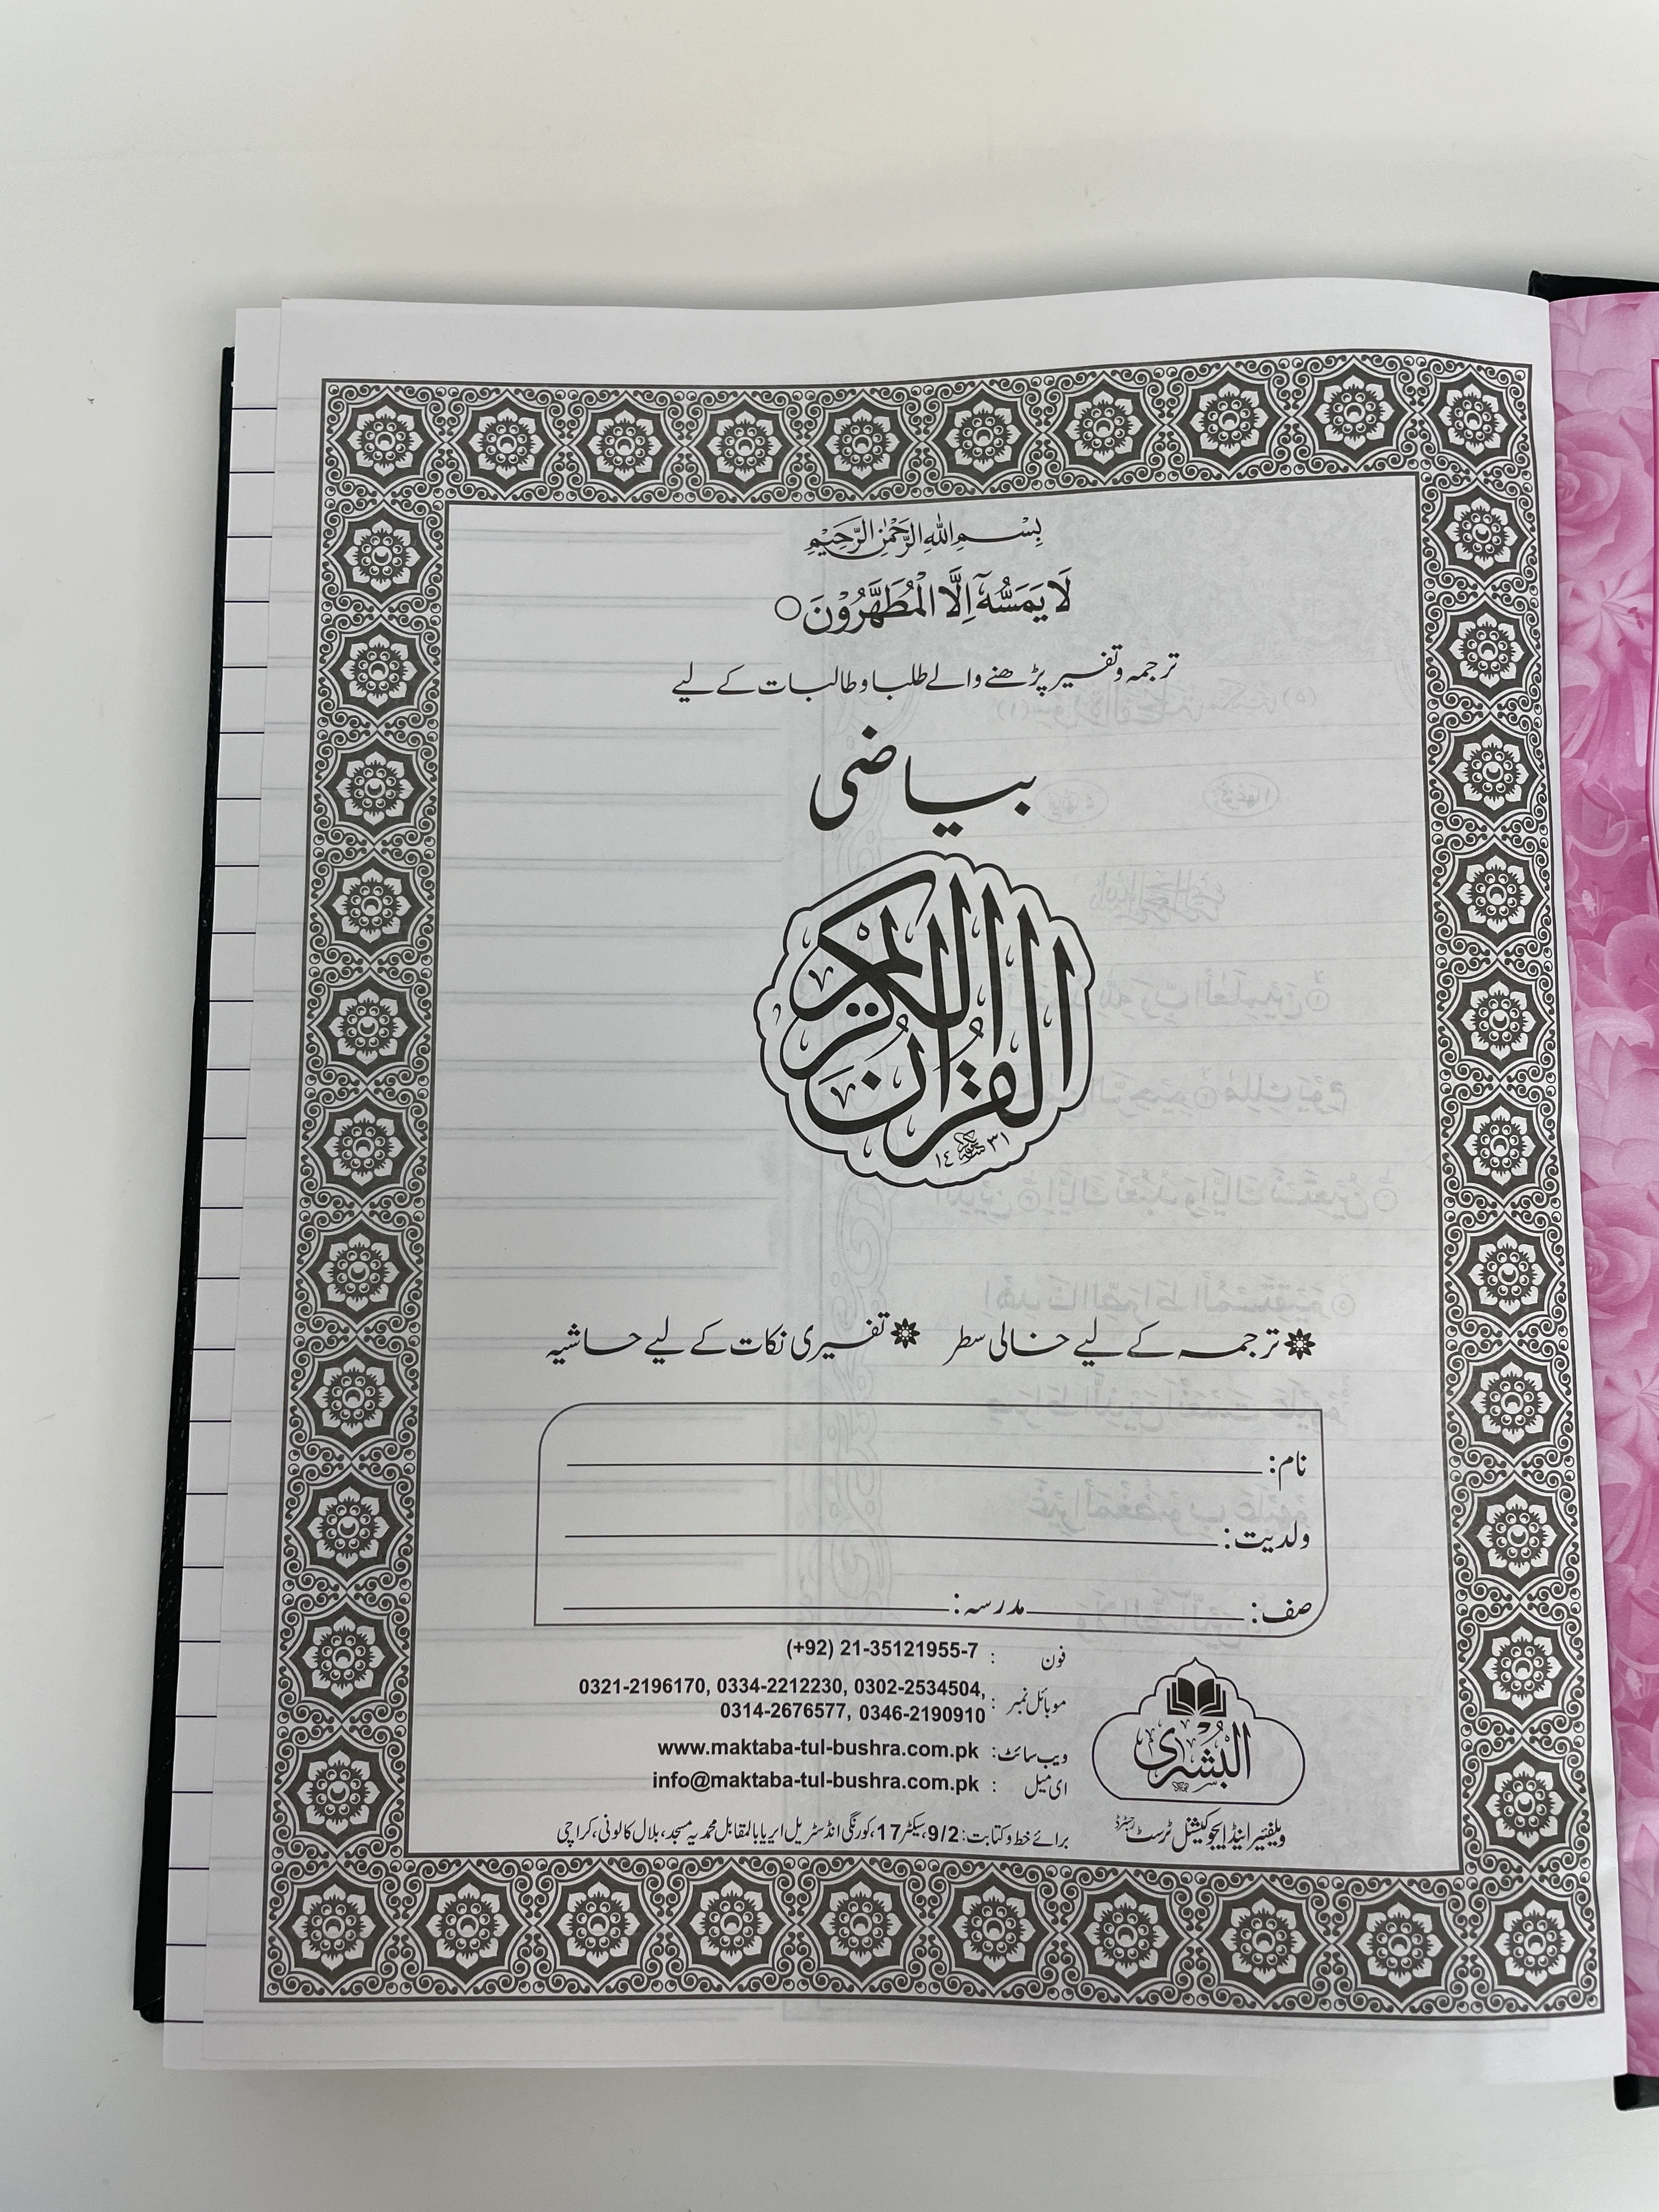 بِسْمِ اللهِ الرَّحْمٰنِ الرَّحِيْمِ
لَا يَمَسُّهٗٓ اِلَّا الْمُطَهَّرُوْنَ ○
ترجمہ و تفسیر پڑھنے والے طلبا و طالبات کے لیے
بیاضی
القرآن الكريم
١٤٣١
ترجمہ کے لیے خالی سطر تفسیری نکات کے لیے حاشیہ
نام:
ولدیت:
صف: مدرسہ:
فون : (+92) 21-35121955-7
موبائل نمبر : 0321-2196170, 0334-2212230, 0302-2534504,
0314-2676577, 0346-2190910
ویب سائٹ: www.maktaba-tul-bushra.com.pk
ای میل : info@maktaba-tul-bushra.com.pk
برائے خط و کتابت: 9/2، سیکٹر 17، کورنگی انڈسٹریل ایریا بالمقابل محمدیہ مسجد، بلال کالونی، کراچی
البشرى
ویلفیئر اینڈ ایجوکیشنل ٹرسٹ رجسٹرڈ